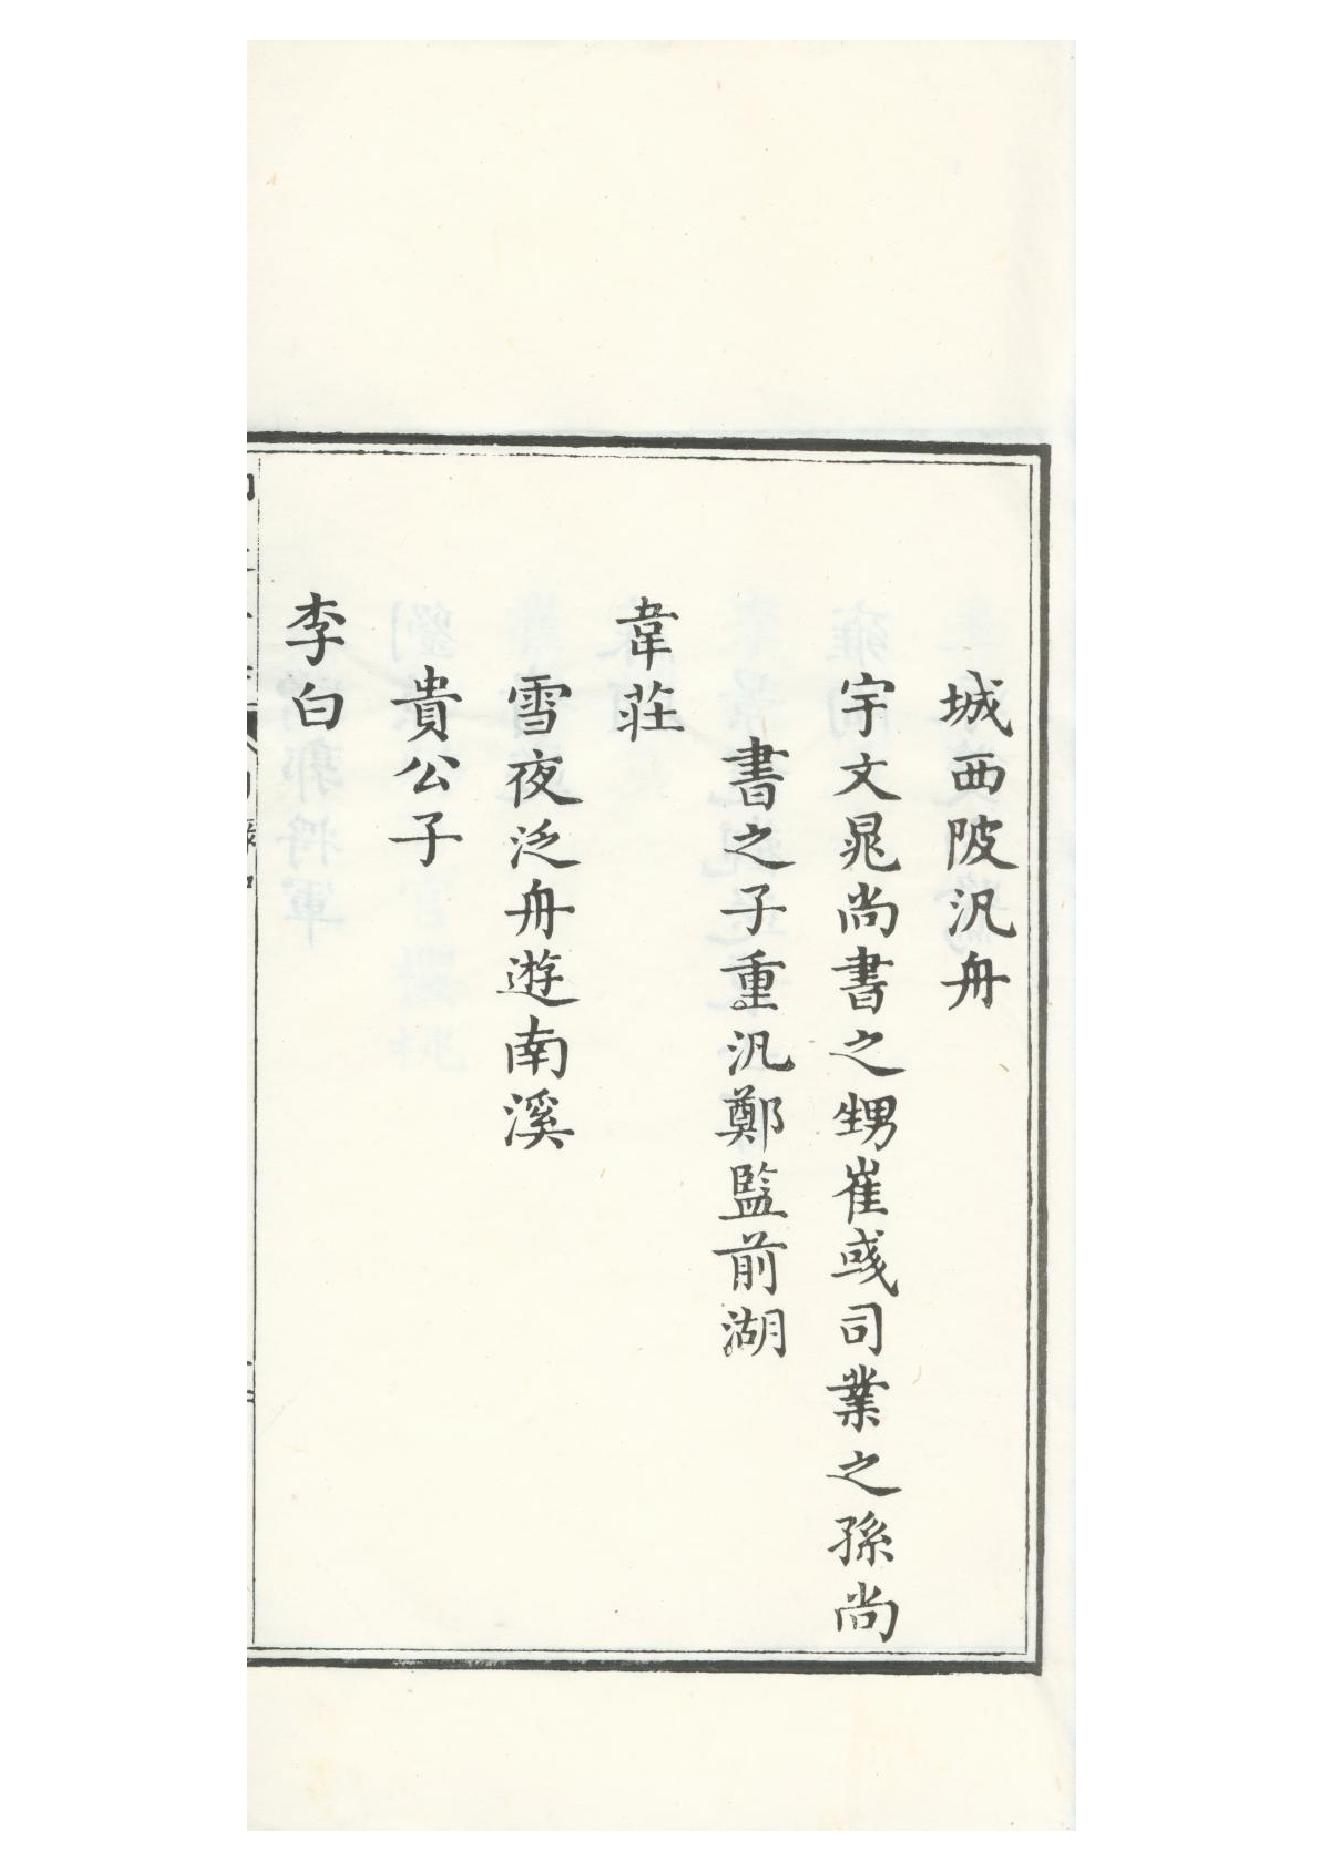 城西陂汎舟
宇文晁尚書之甥崔彧司業之孫尚
書之子重汎鄭監前湖
韋莊
雪夜泛舟遊南溪
貴公子
李白